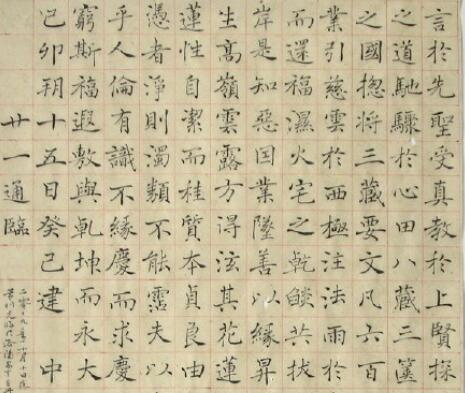 言於先聖受真教於上賢探
之道馳驟於心田八藏三篋
之國揔將三藏要文凡六百
業引慈雲於西極注法雨於
而還福濕火宅之乾燄共拔
岸是知惡囙業墜善以緣昇
生高嶺雲露方得泫其花蓮
蓮性自潔而桂質本貞良由
憑者淨則濁類不能霑夫以
乎人倫有識不緣慶而求慶
窮斯福遐敷與乹坤而永大
己卯朔十五日癸巳建中
廿一通臨
二零一九年十月十日